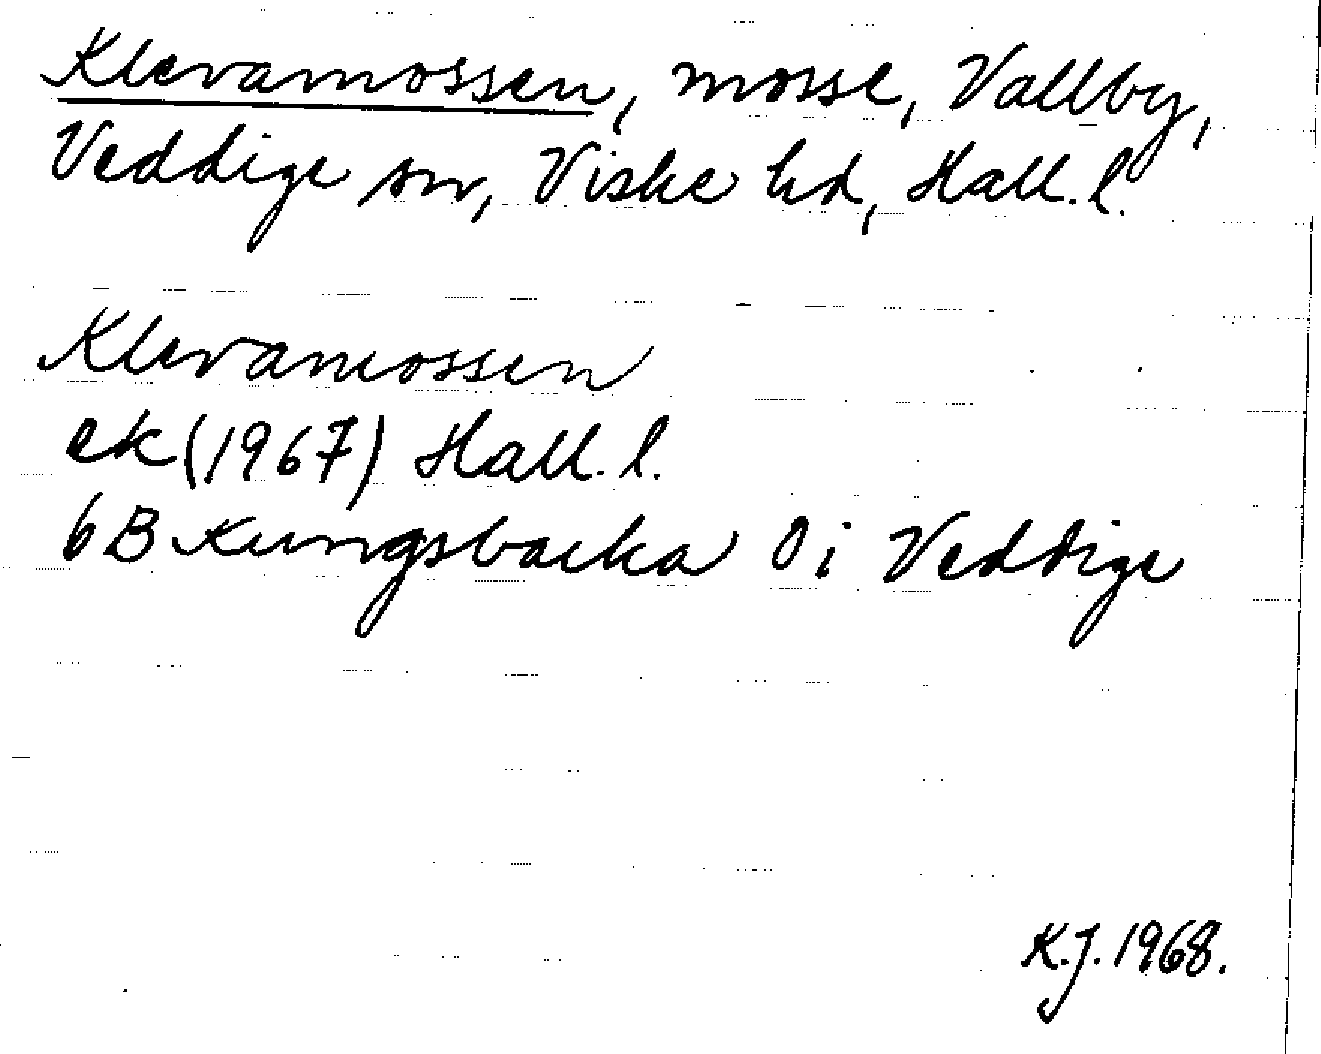 Klevamossen, mosse, Vallby,
Veddige sn, Viske hd, Hall. l.
Klevamossen
ek (1967) Hall. l.
6B Kungsbacka 0i Veddige
K.J. 1968.